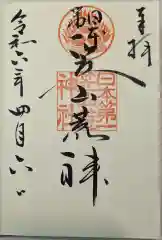 奉拝
笠山荒神
日本第一
神社
令和六年四月六日